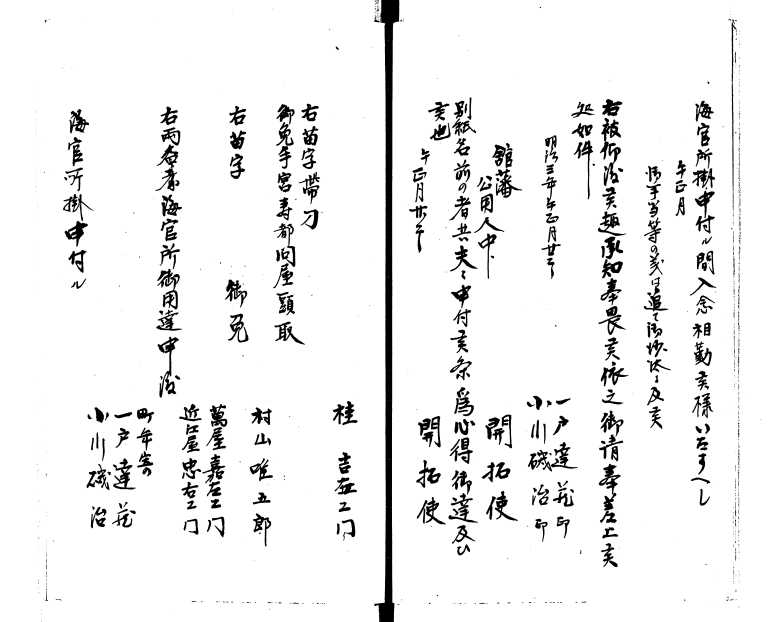 海官所掛申付ル間入念相勤候様いたすへし
午正月
御手当等の義は追て御沙汰に及候
右被仰渡候趣承知奉畏候依之御請奉差上候
処如件
明治三年午正月廿
一戸達蔵印
小川磯治印
館藩
公用人中
開拓使
別紙名前の者共夫々申付候条為心得御達及ひ
候也
午正月廿
開拓使
桂吉右エ門
右苗字帯刀
御免手宮寿都問屋頭取
村山唯五郎
右苗字
御免
萬屋嘉右エ門
近江屋忠右エ門
右両名者海官所御用達申渡
町年寄
一戸達蔵
小川磯治
海官所掛申付ル